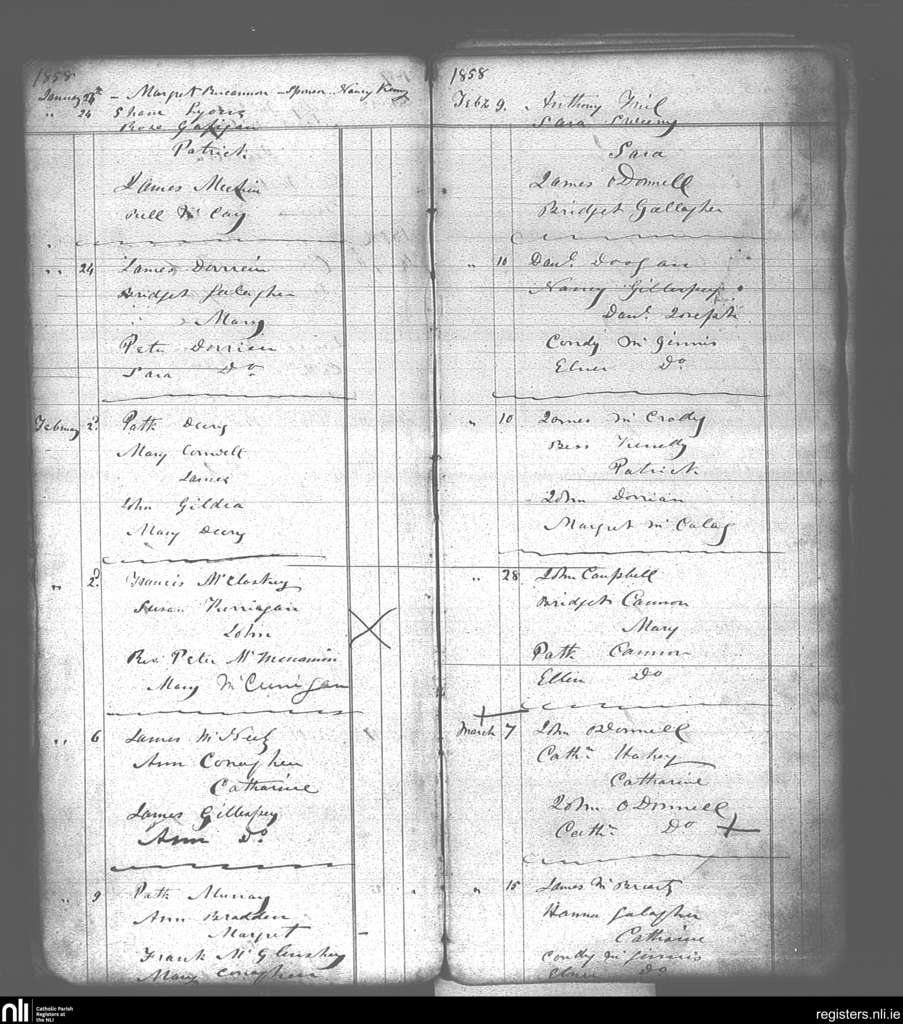 1858
January 26th - Margret Brecannon - Sponsor - Nancy Kenny
" 24 Shane Lyons
Rose Gafigan
Patrick
James Meehin
Nell McCay
" 24 James Dorrein
Bridget Galagher
Mary
Peter Dorrien
Sara Do
Febuay 2d Patk Deery
Mary Conwell
James
John Gildea
Mary Deery
" 2d Francis McCloskey
Susan Kerrigan
John
Rev Peter McMenamin
Mary McCunigan
" 6 James McNeely
Ann Conaghen
Catharine
James Gillespey
Ann Do.
" 9 Patk Murray
Ann Bradden
Margret
Frank McGlinshey
Mary Conaghen
1858
Feb 9. Anthony Friel
Sara Sweeny
Sara
James O'Donnell
Bridget Gallagher
" 10 Danl. Doogan
Nancy Gillespey
Danl. Joseph
Condy McGinnis
Elner Do
" 10 James McCrody
Bess Kennedy
Patrick
John Dorrian
Margret McCalag
" 28 John Campbell
Bridget Cannon
Mary
Patk Cannon
Ellen Do
March 7 John O'Donnell
Cathn
Catharine
John O'Donnell
Cathn Do
" 15 James McBrearty
Hanna Galagher
Cathaine
Condy McGinnis
Elner Do
nli
Catholic Parish
Registers at
the NLI
registers.nli.ie